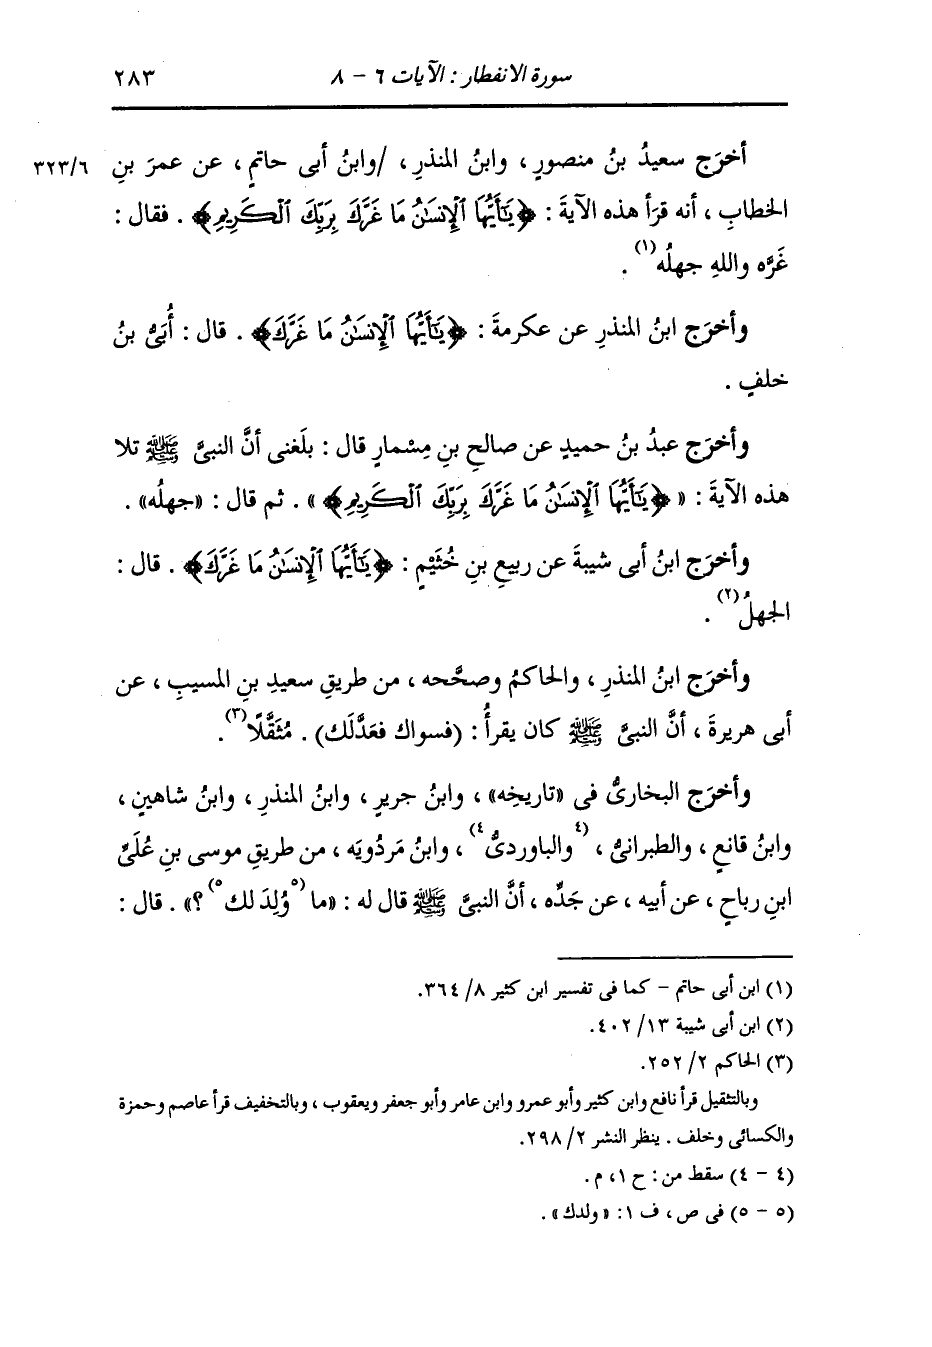 سورة الانفطار : الآيات ٦ - ٨
٢٨٣
أخرَج سعيدُ بنُ منصورٍ ، وابنُ المنذرِ ، /وابنُ أبى حاتمٍ ، عن عمرَ بنِ
٣٢٣/٦
الخطابِ ، أنه قرَأ هذه الآيةَ : ﴿يَٰٓأَيُّهَا ٱلْإِنسَٰنُ مَا غَرَّكَ بِرَبِّكَ ٱلْكَرِيمِ﴾ . فقال :
غَرَّه واللهِ جهلُه(١) .
وأخرَج ابنُ المنذرِ عن عكرمةَ : ﴿يَٰٓأَيُّهَا ٱلْإِنسَٰنُ مَا غَرَّكَ﴾ . قال : أُبَىُّ بنُ
خلفٍ .
وأخرَج عبدُ بنُ حميدٍ عن صالحِ بنِ مِسْمارٍ قال : بلَغنى أنَّ النبىَّ ﷺ تلا
هذه الآيةَ : « ﴿يَٰٓأَيُّهَا ٱلْإِنسَٰنُ مَا غَرَّكَ بِرَبِّكَ ٱلْكَرِيمِ﴾ » . ثم قال : «جهلُه» .
وأخرَج ابنُ أبى شيبةَ عن ربيعِ بنِ خُثَيْمٍ : ﴿يَٰٓأَيُّهَا ٱلْإِنسَٰنُ مَا غَرَّكَ﴾ . قال :
الجهلُ(٢) .
وأخرَج ابنُ المنذرِ ، والحاكمُ وصحَّحه ، من طريقِ سعيدِ بنِ المسيبِ ، عن
أبى هريرةَ ، أنَّ النبىَّ ﷺ كان يقرأُ : (فسواك فعَدَّلَك) . مُثَقَّلًا(٣) .
وأخرَج البخارىُّ فى «تاريخِه» ، وابنُ جريرٍ ، وابنُ المنذرِ ، وابنُ شاهينٍ ،
وابنُ قانعٍ ، والطبرانىُّ ، (٤والباوردىُّ٤) ، وابنُ مَردُويَه ، من طريقِ موسى بنِ عُلَىِّ
ابنِ رباحٍ ، عن أبيه ، عن جَدِّه ، أنَّ النبىَّ ﷺ قال له : «ما (٥وُلِدَ لك٥) ؟» . قال :
(١) ابن أبى حاتم - كما فى تفسير ابن كثير ٨/ ٣٦٤.
(٢) ابن أبى شيبة ١٣/ ٤٠٢.
(٣) الحاكم ٢/ ٢٥٢.
وبالتثقيل قرأ نافع وابن كثير وأبو عمرو وابن عامر وأبو جعفر ويعقوب ، وبالتخفيف قرأ عاصم وحمزة
والكسائى وخلف . ينظر النشر ٢/ ٢٩٨.
(٤ - ٤) سقط من : ح ١، م .
(٥ - ٥) فى ص ، ف ١: « ولدك » .